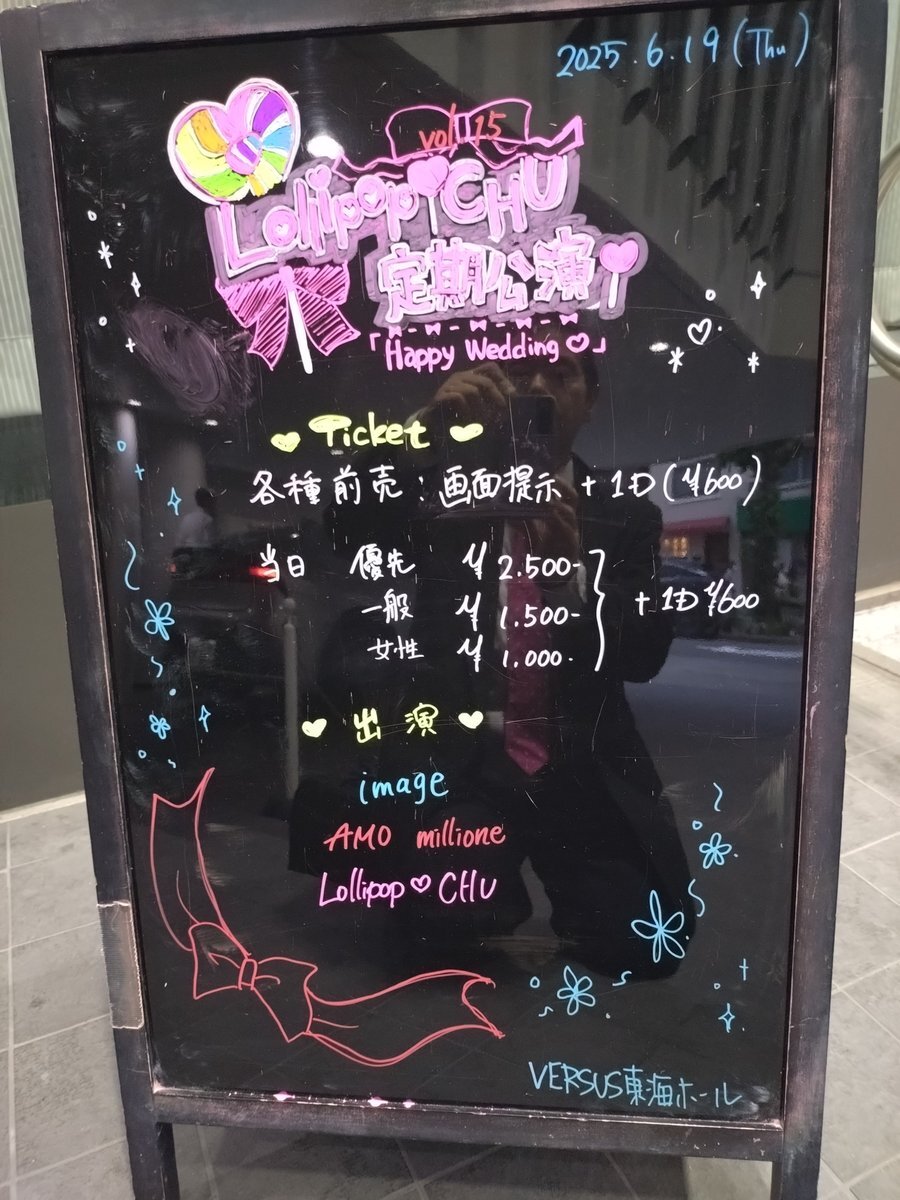 2025.6.19(Thu)
vol.15
Lollipop♡CHU
定期公演
「Happy Wedding♡」
Ticket
各種前売:画面提示 + 1D(¥600)
当日 優先 ¥2.500-
一般 ¥1.500-
女性 ¥1.000-
+1D ¥600
出演
image
AMO millione
Lollipop♡CHU
VERSUS東海ホール